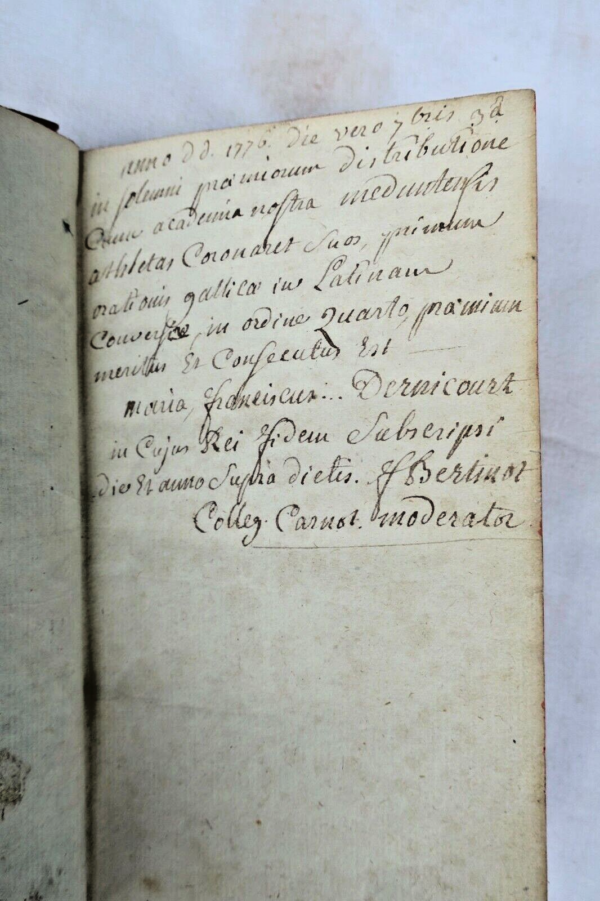 anno d d. 1776. die vero 7bris 3a
in solemni præmiorum distributione
Cum academia nostra meduntensis
athletas Coronaret Suos, primum
orationis gallicæ in Latinam
Conversæ, in ordine Quarto, præmium
meritus Et Consecutus Est
maria, franciscus... Dernicourt
in Cujus Rei fidem Subscripsi
die Et anno Supra dictis. J Bertinot
Colleg. Carnot. moderator